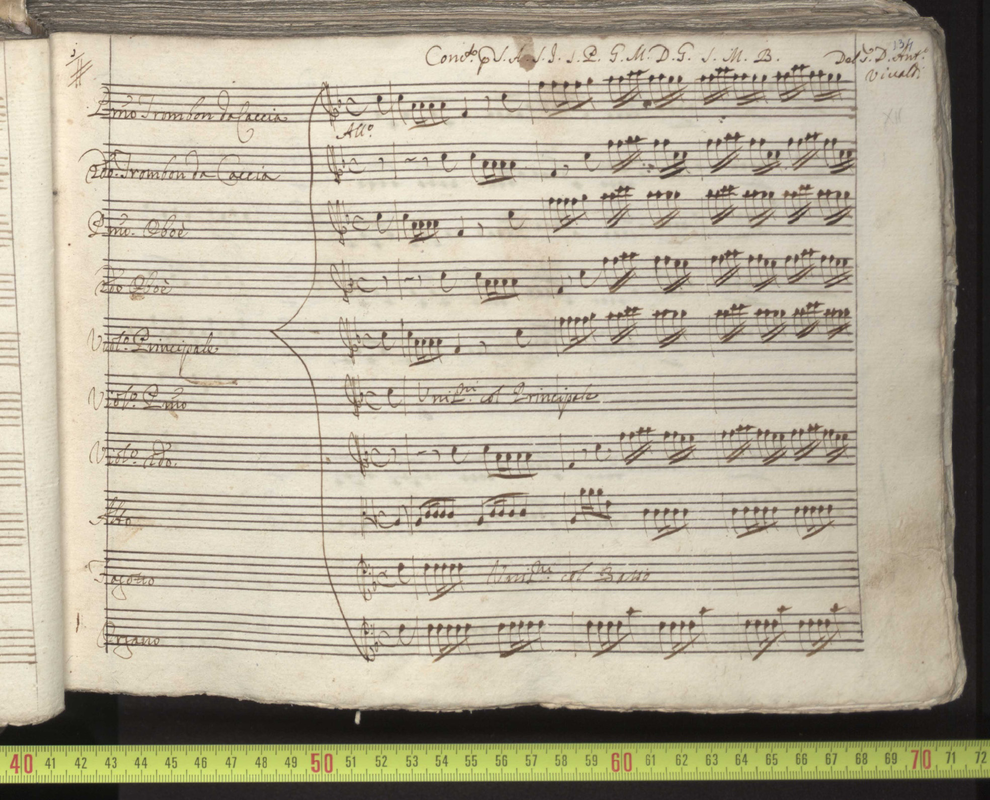 134
Conc.to p S. A. S. I. S. P. G. M. D. G. S. M. B.
Del S. D. Ant.o
Vivaldi
XII
P.mo Trombon da Caccia
All.o
2do. Trombon da Caccia
P.mo. Oboè
2do Oboè
Viol.o Principale
Viol.o P.mo
Unis.ni col Principale
Viol.o 2do.
Alto
Fagotto
Unis.ni col Basso
Organo
40 41 42 43 44 45 46 47 48 49 50 51 52 53 54 55 56 57 58 59 60 61 62 63 64 65 66 67 68 69 70 71 72